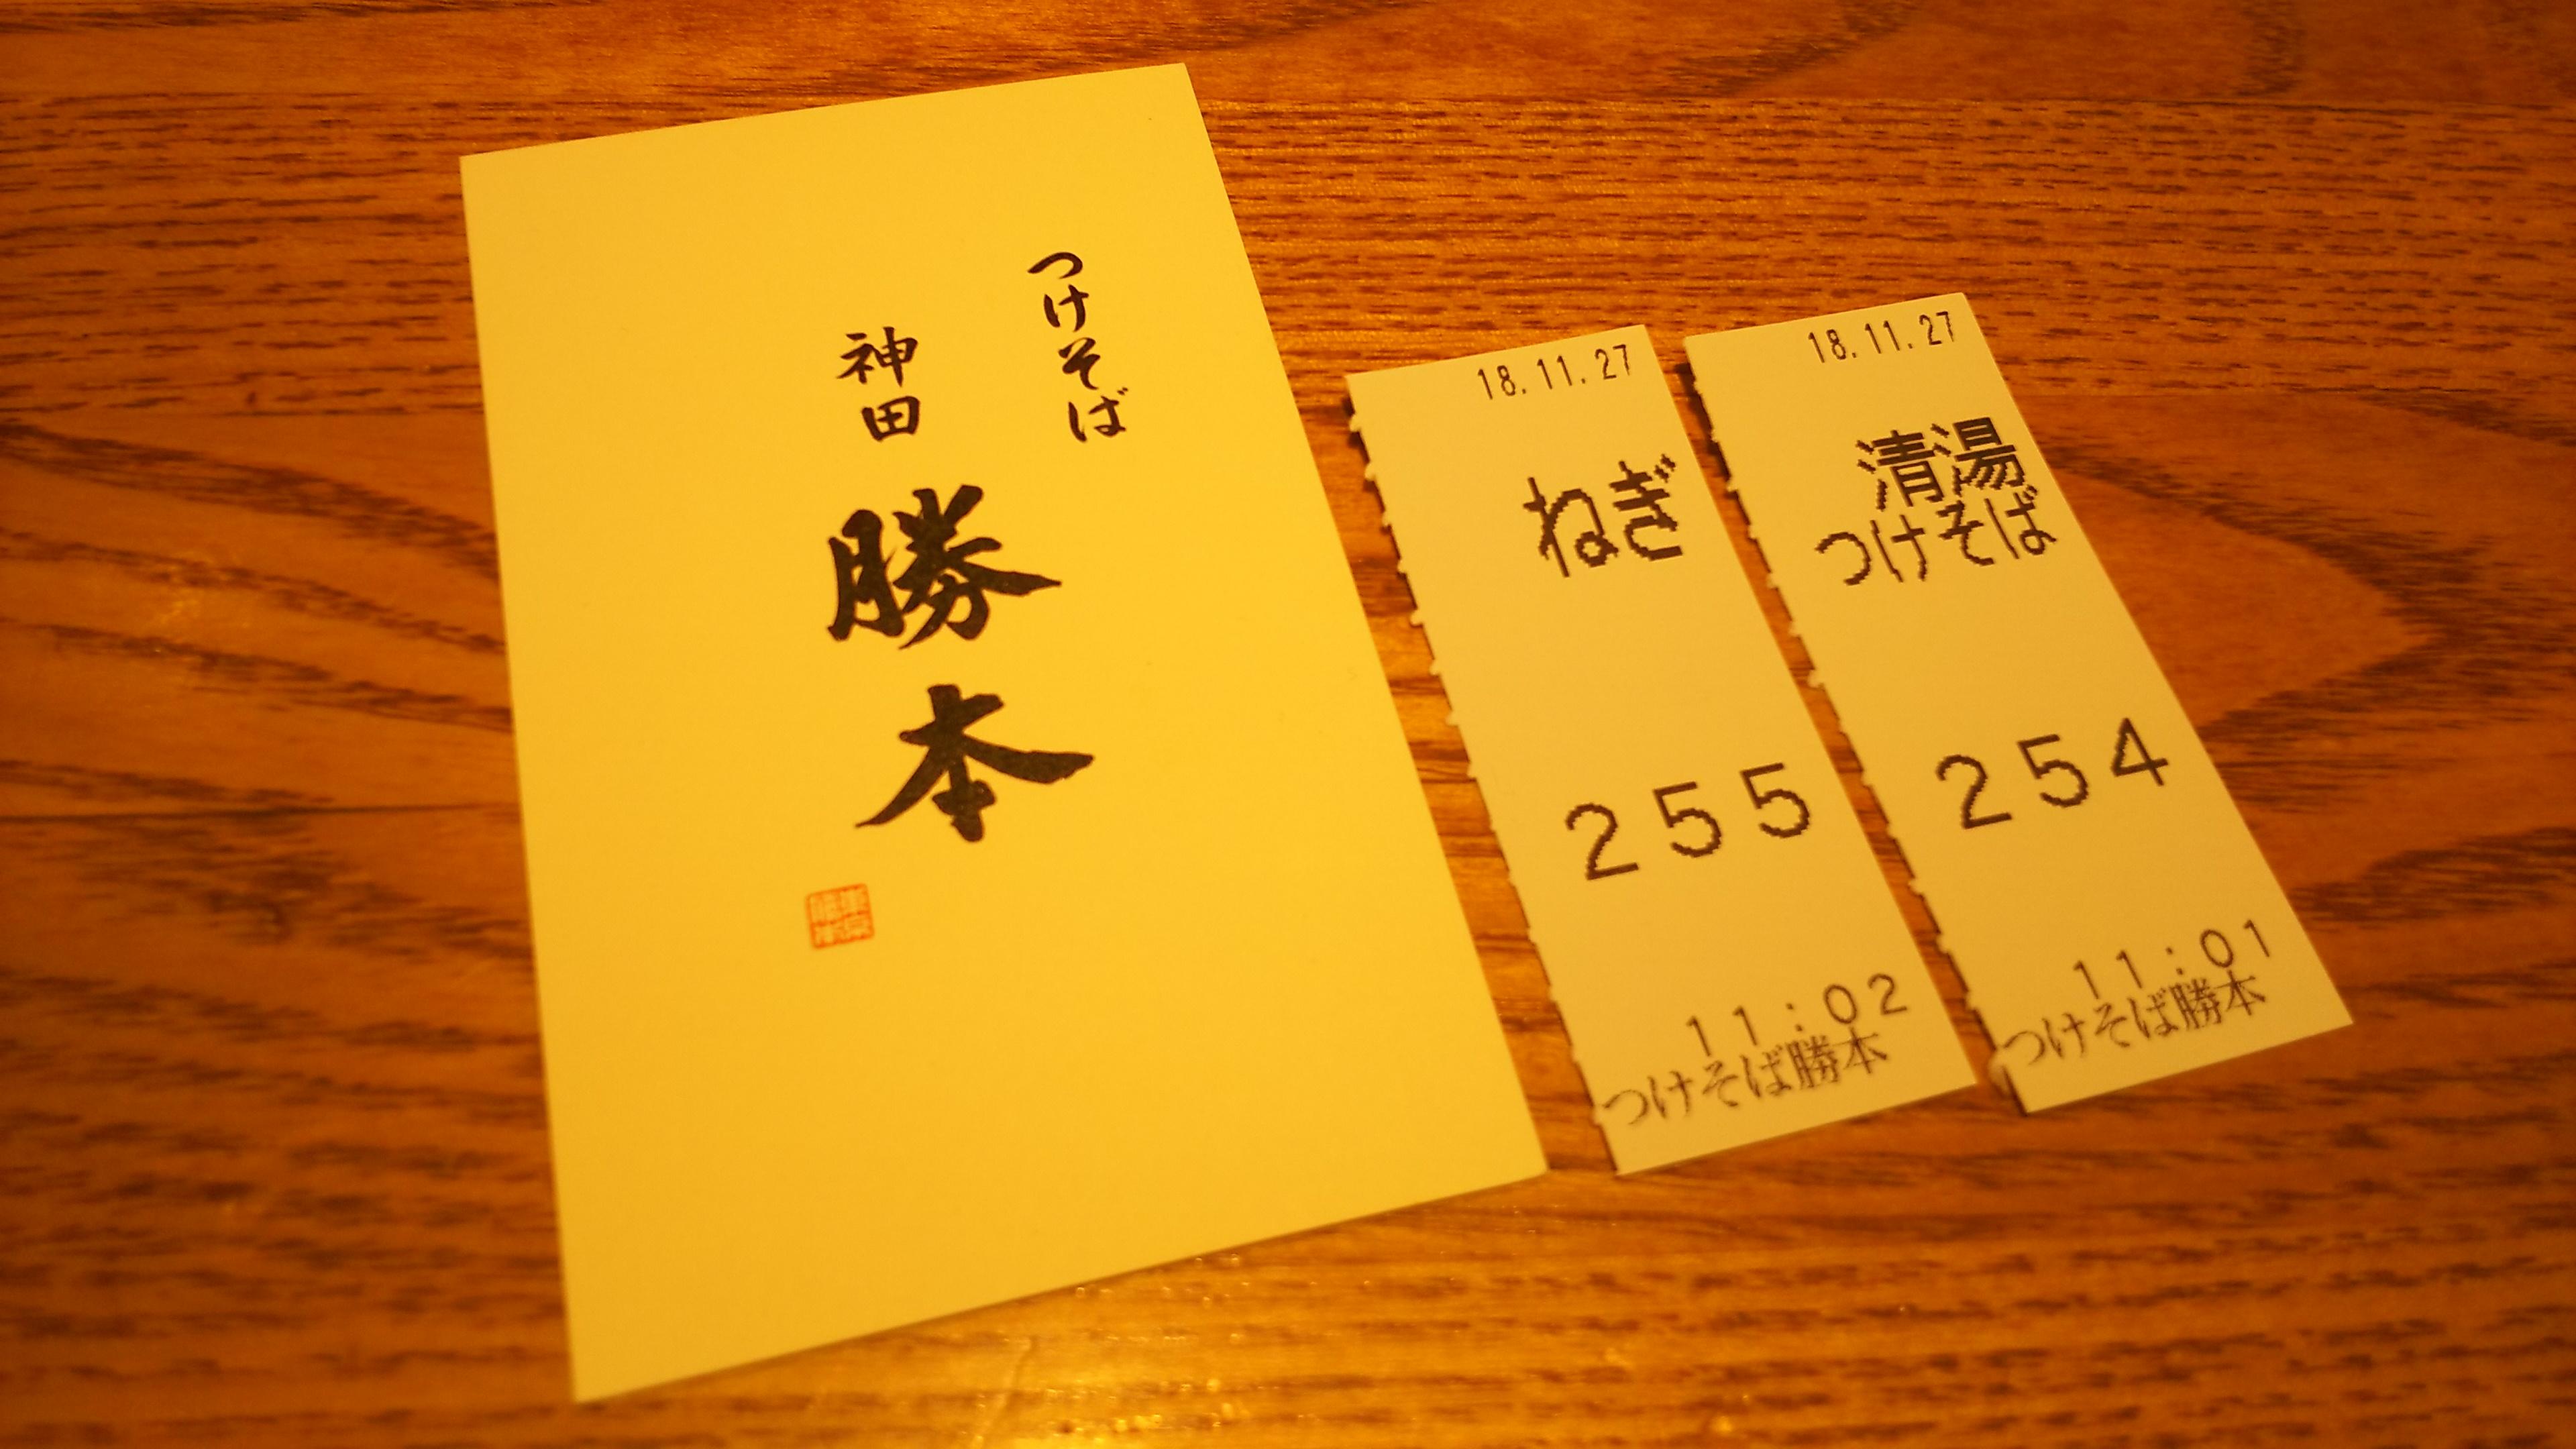 つけそば
神田
勝本
18.11.27
ねぎ
255
11:02
つけそば勝本
18.11.27
清湯
つけそば
254
11:01
つけそば勝本